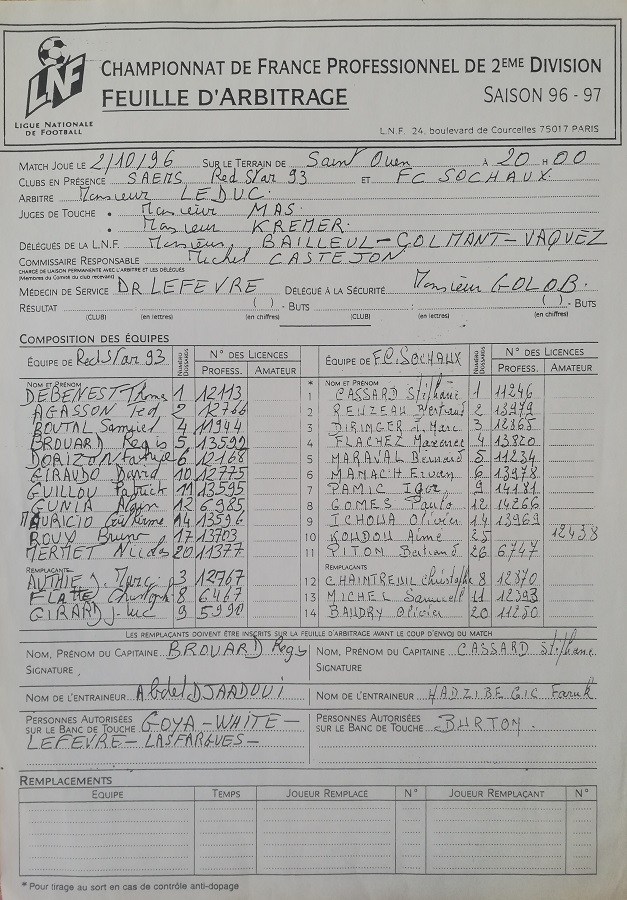 LNF
LIGUE NATIONALE
DE FOOTBALL
CHAMPIONNAT DE FRANCE PROFESSIONNEL DE 2EME DIVISION
FEUILLE D'ARBITRAGE
SAISON 96 - 97
L.N.F. 24, boulevard de Courcelles 75017 PARIS
MATCH JOUÉ LE 2/10/96 SUR LE TERRAIN DE Saint Ouen À 20 H 00
CLUBS EN PRÉSENCE SAEMS Red Star 93 ET FC SOCHAUX
ARBITRE Monsieur LEDUC
JUGES DE TOUCHE • Monsieur MAS
• Monsieur KREMER
DÉLÉGUÉS DE LA L.N.F. Messieurs BAILLEUL-GOLMANT-VAQUEZ
COMMISSAIRE RESPONSABLE Michel CASTEJON
CHARGÉ DE LIAISON PERMANENTE AVEC L'ARBITRE ET LES DÉLÉGUÉS
(Membres du Comité du club recevant)
MÉDECIN DE SERVICE DR LEFEVRE DÉLÉGUÉ À LA SÉCURITÉ Monsieur GOLOB
RÉSULTAT : ( ) - BUTS : ( ) - BUTS
(CLUB) (en lettres) (en chiffres) (CLUB) (en lettres) (en chiffres)
COMPOSITION DES ÉQUIPES
ÉQUIPE DE Red Star 93 NUMÉRO DOSSARDS N° DES LICENCES PROFESS. AMATEUR
NOM ET PRÉNOM
DEBENEST Thomas 1 12113
AGASSON Ted 2 12766
BOUTAL Samuel 4 11944
BROUARD Regis 5 13592
DORIZON 6 12168
GIRAUDO David 10 12775
GUILLOU Patrick 11 13595
GUNIA Alain 12 6985
MAURICIO Guilherme 14 13596
ROUX Bruno 17 13703
MERMET Nicolas 20 11377
REMPLAÇANTS
AUTHIE J. Marc 3 12767
Christophe 8 6467
GIRARD J-luc 9 5990
ÉQUIPE DE F.C. SOCHAUX NUMÉRO DOSSARDS N° DES LICENCES PROFESS. AMATEUR
* NOM ET PRÉNOM
1 CASSARD Stéphane 1 11246
2 REUZEAU Bertrand 2 13979
3 DIRINGER J. Marc 3 12365
4 FLACHEZ Maxence 4 13820
5 MARAVAL Bernard 5 11234
6 MANACH Erwan 6 13978
7 PAMIC Igor 9 14181
8 GOMES Paulo 12 14266
9 ICHOUA Olivier 14 13969
10 KOUDOU Aimé 25 12438
11 PITON Bertrand 26 6747
REMPLAÇANTS
12 CHAINTREUIL Christophe 8 12370
13 MICHEL Samuel 11 12393
14 BAUDRY Olivier 20 11250
LES REMPLAÇANTS DOIVENT ÊTRE INSCRITS SUR LA FEUILLE D'ARBITRAGE AVANT LE COUP D'ENVOI DU MATCH
NOM, PRÉNOM DU CAPITAINE BROUARD Regis NOM, PRÉNOM DU CAPITAINE CASSARD Stéphane
SIGNATURE SIGNATURE
NOM DE L'ENTRAINEUR Abdel DJAADOUI NOM DE L'ENTRAINEUR HADZIBEGIC Faruk
PERSONNES AUTORISÉES SUR LE BANC DE TOUCHE GOYA - WHITE -
LEFEVRE - LASFARGUES -
PERSONNES AUTORISÉES SUR LE BANC DE TOUCHE BURTON
REMPLACEMENTS
ÉQUIPE TEMPS JOUEUR REMPLACÉ N° JOUEUR REMPLAÇANT N°
* Pour tirage au sort en cas de contrôle anti-dopage